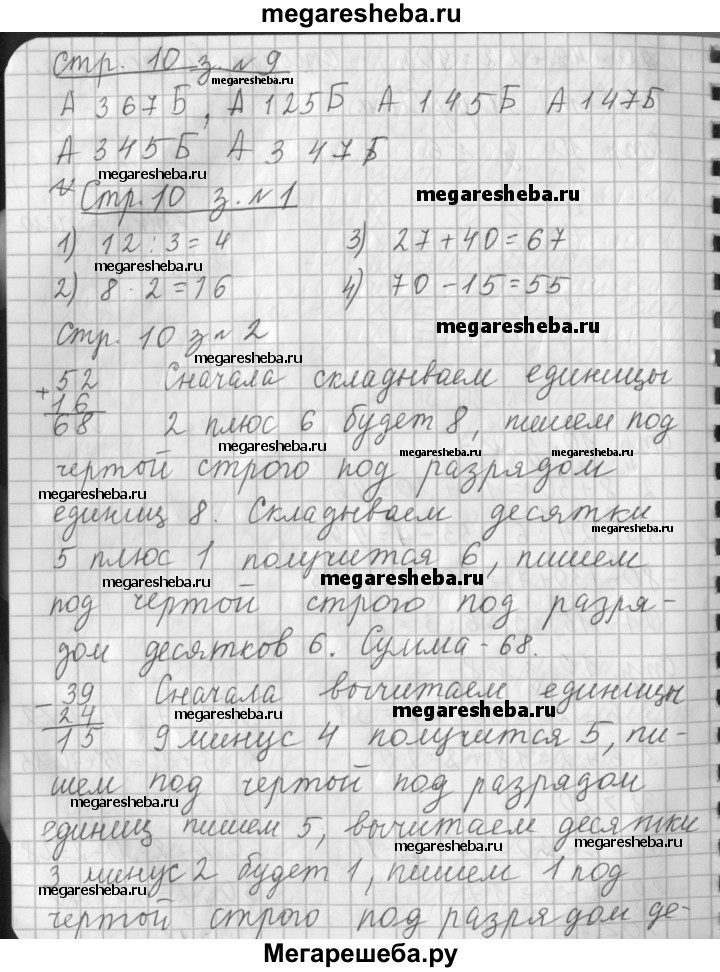 megaresheba.ru
стр. 10 з. № 9
megaresheba.ru
А 367Б, А 125Б А 145Б А 147Б
А 345Б А 347Б
megaresheba.ru
Стр. 10 з. № 1
megaresheba.ru
1) 12 : 3 = 4 3) 27 + 40 = 67
megaresheba.ru
2) 8 · 2 = 16 4) 70 - 15 = 55
Стр. 10 з № 2
megaresheba.ru
megaresheba.ru
+ 52 Сначала складываем единицы
16
68 2 плюс 6 будет 8, пишем под
megaresheba.ru
megaresheba.ru
megaresheba.ru
чертой строго под разрядом
megaresheba.ru
единиц 8. Складываем десятки
megaresheba.ru
5 плюс 1 получится 6, пишем
megaresheba.ru
megaresheba.ru
под чертой строго под разря-
дом десятков 6. Сумма - 68.
- 39 Сначала вычитаем единицы
24
megaresheba.ru
megaresheba.ru
15 9 минус 4 получится 5, пи-
шем под чертой под разрядом
megaresheba.ru
единиц пишем 5, вычитаем десятки
megaresheba.ru
megaresheba.ru
3 минус 2 будет 1, пишем 1 под
чертой строго под разрядом де-
Мегарешеба.ру